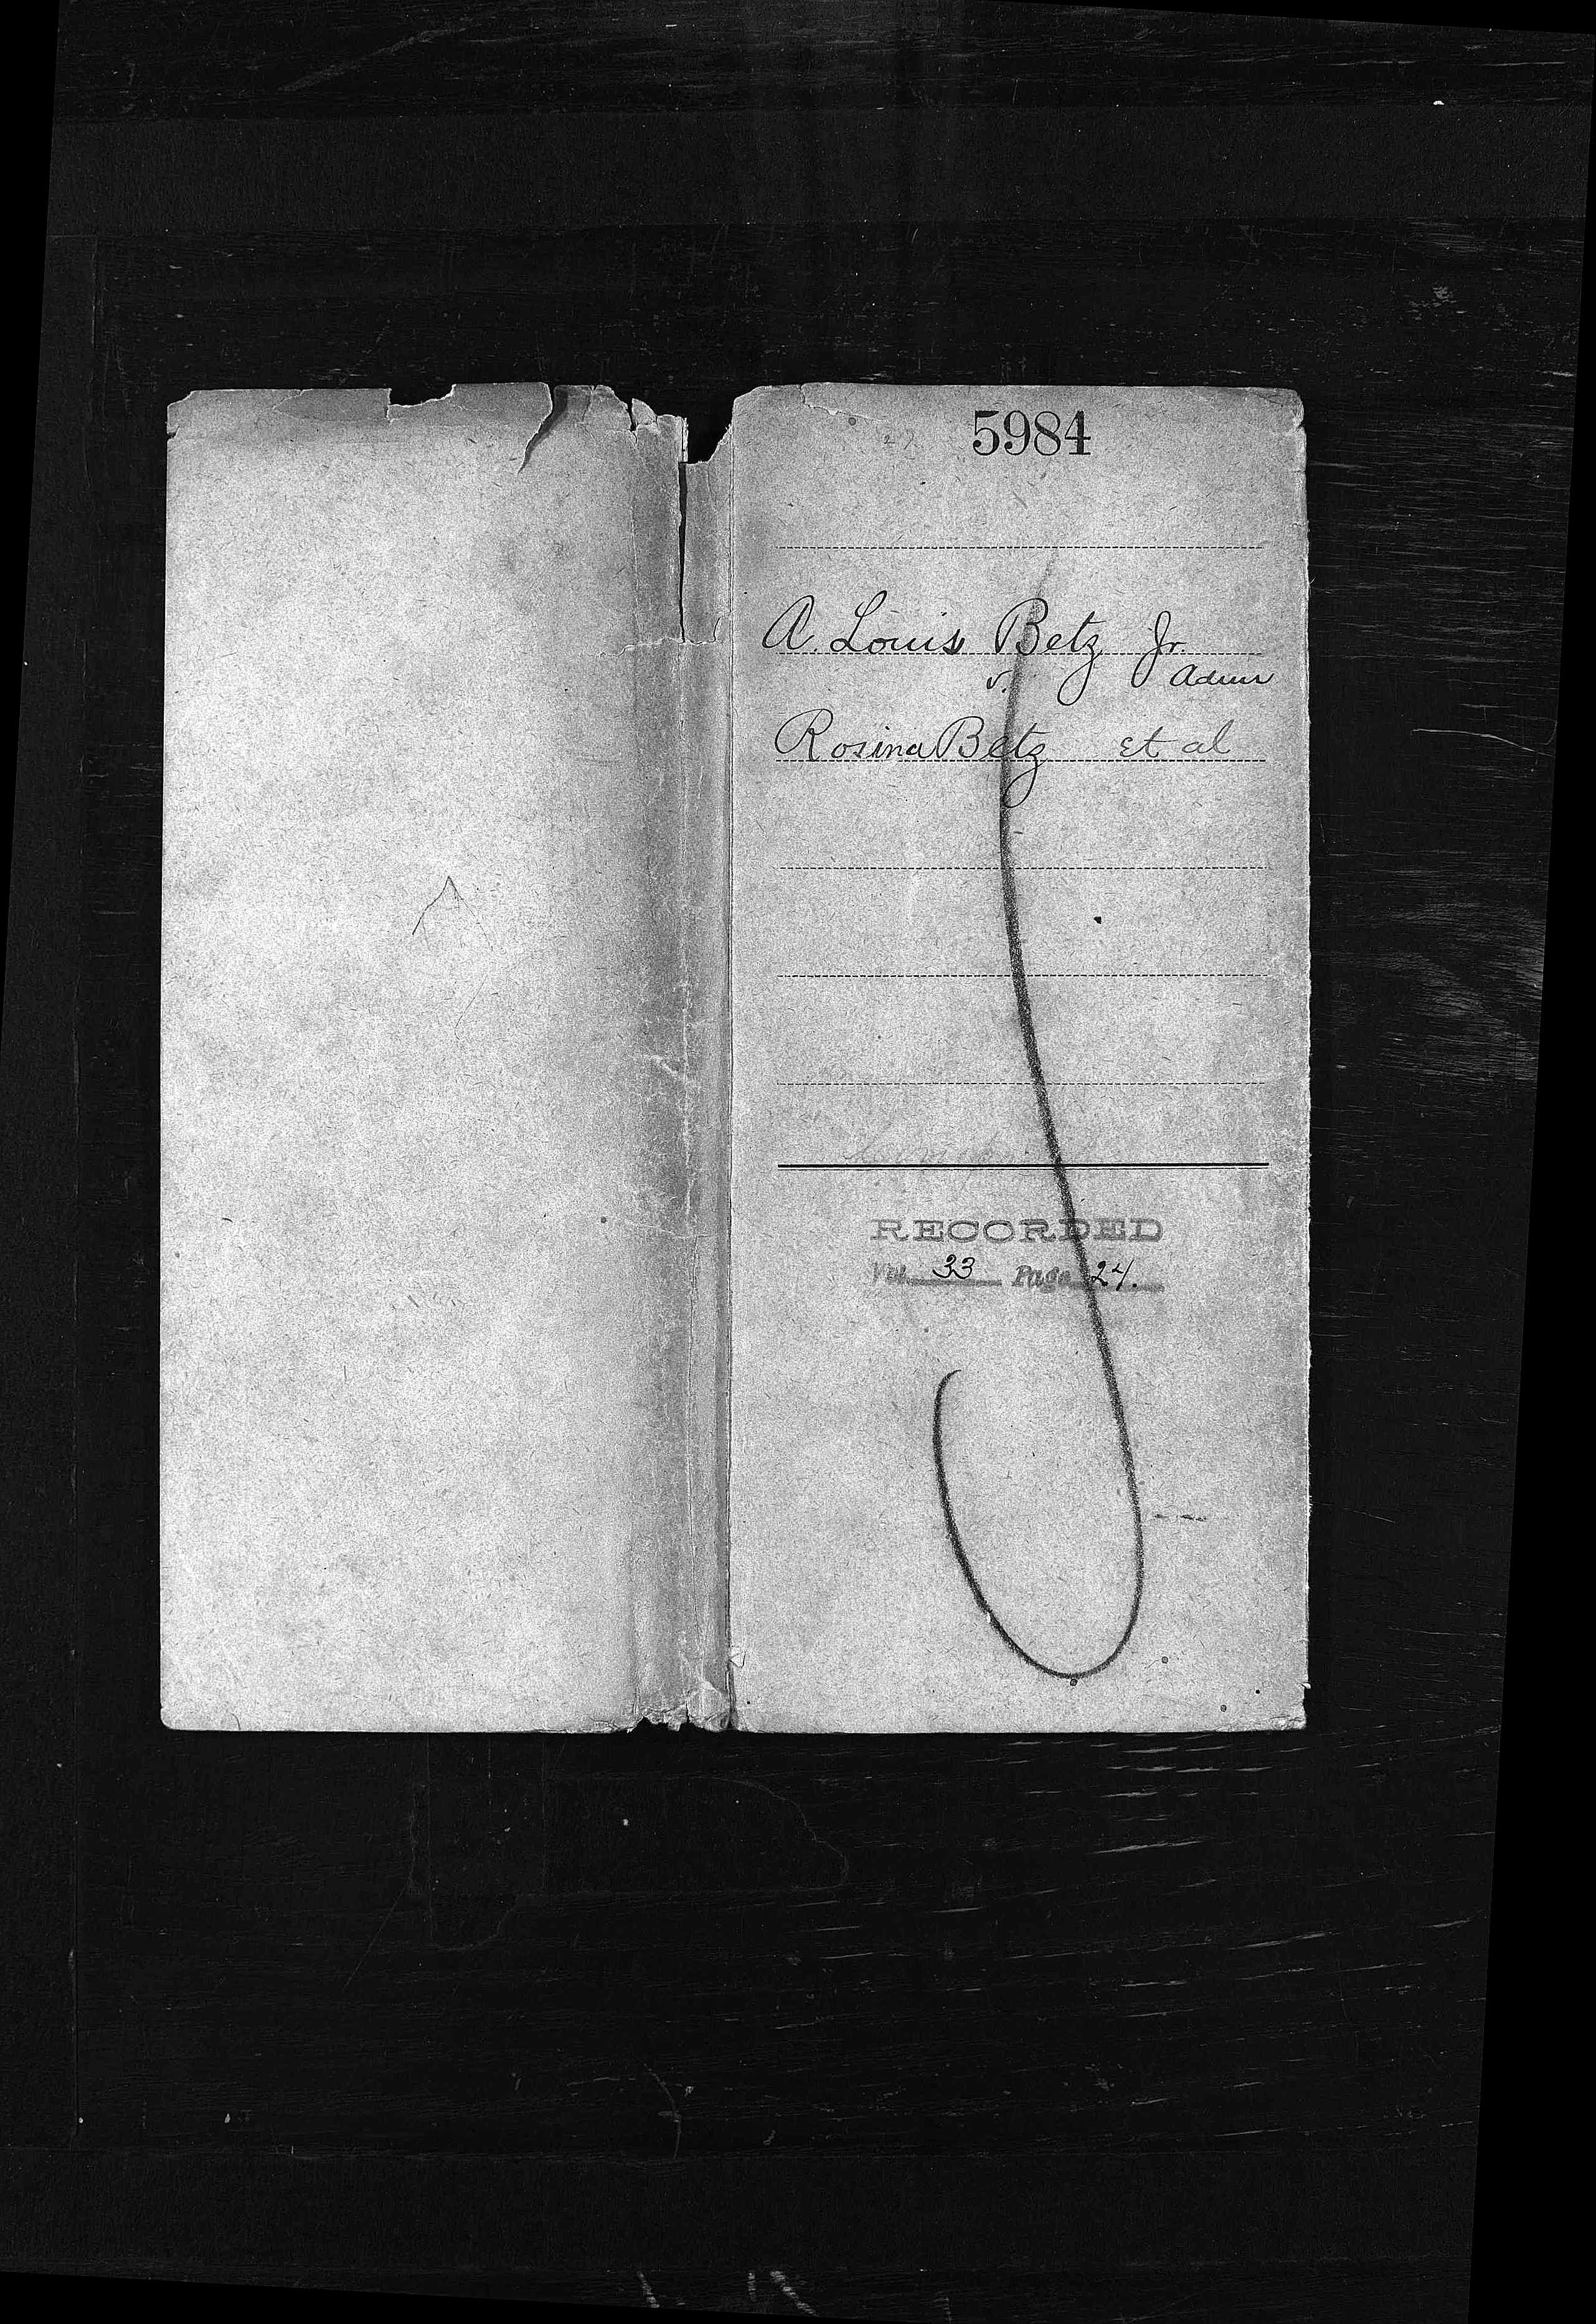 5984
A. Louis Betz Jr.
v. Admr
Rosina Betz et al
RECORDED
Vol. 33 Page 24.